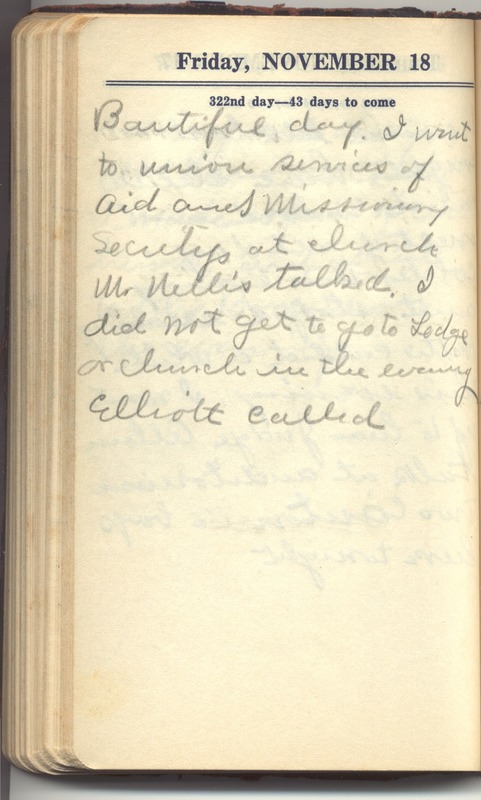 Friday, NOVEMBER 18
322nd day—43 days to come
Bautiful day. I went
to union services of
aid and Missionary
Secitys at church
Mr Nellis talked. I
did not get to go to Lodge
or church in the evening
Elliott called